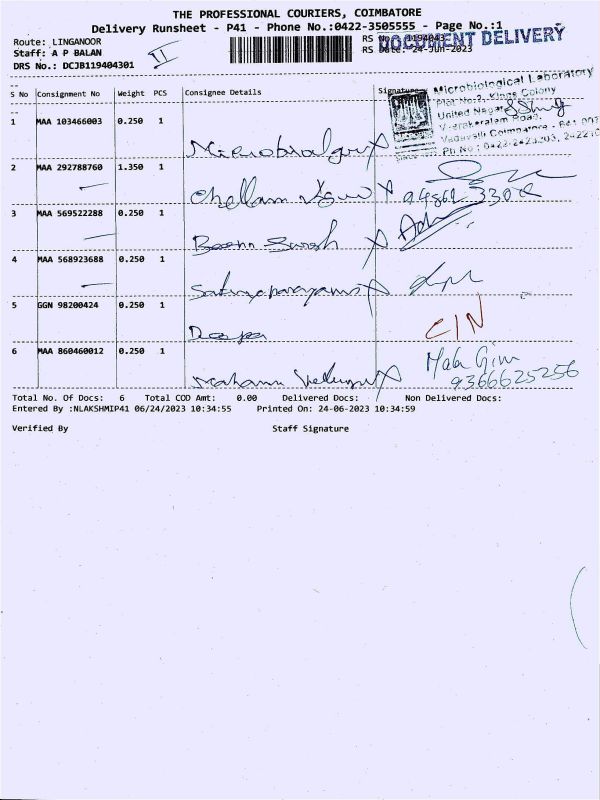 THE PROFESSIONAL COURIERS, COIMBATORE
Delivery Runsheet - P41 - Phone No.:0422-3505555 - Page No.:1
Route: LINGANOOR
Staff: A P BALAN
DRS No.: DCJB119404301
II
RS No. :1194043
RS Date: 24-Jun-2023
DOCUMENT DELIVERY
S No Consignment No Weight PCS Consignee Details Signature
Microbiological Laboratory
Plot No:2, Kings Colony
United Nagar
Veerakeralam Road,
Vadavalli Coimbatore - 641 007
1 MAA 103466003 0.250 1
2 MAA 292788760 1.350 1
Chellam
3 MAA 569522288 0.250 1
Beena Suresh
4 MAA 568923688 0.250 1
5 GGN 98200424 0.250 1
Deepa
C/N
6 MAA 860460012 0.250 1
9366625256
Total No. Of Docs: 6 Total COD Amt: 0.00 Delivered Docs: Non Delivered Docs:
Entered By :NLAKSHMIP41 06/24/2023 10:34:55 Printed On: 24-06-2023 10:34:59
Verified By Staff Signature